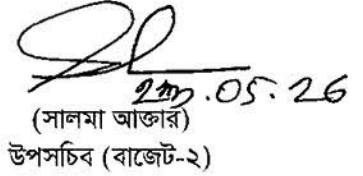 .05.26
(সালমা আক্তার)
উপসচিব (বাজেট-২)